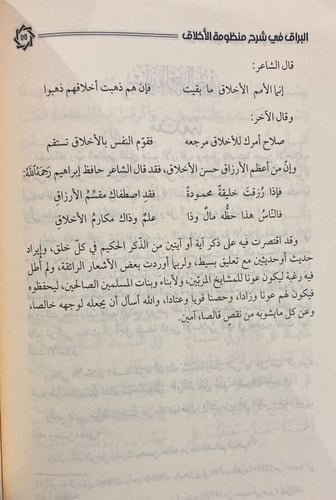 البراق في شرح منظومة الأخلاق
قال الشاعر:
إنما الأمم الأخلاق ما بقيت فإن هم ذهبت أخلاقهم ذهبوا
وقال الآخر:
صلاح أمرك للأخلاق مرجعه فقوّم النفس بالأخلاق تستقم
وإنّ من أعظم الأرزاق حسن الأخلاق، فقد قال الشاعر حافظ إبراهيم رَحِمَهُ اللَّهُ:
فإذا رُزقتَ خليقةً محمودةً فقدِ اصطفاك مقسِّمُ الأرزاقِ
فالنّاسُ هذا حظُّه مالٌ وذا علمٌ وذاك مكارمُ الأخلاقِ
وقد اقتصرت فيه على ذكر آية أو آيتين من الذّكر الحكيم في كلّ خلق، وإيراد
حديث أوحديثين مع تعليق بسيط، ولربما أوردت بعض الأشعار الرائقة، ولم أطل
فيه رغبة ليكون عونا للمشايخ المربّين، ولأبناء وبنات المسلمين الصالحين، ليحفظوه
فيكون لهم عونا وزادا، وحصنا قويا وعتادا، والله أسأل أن يجعله لوجهه خالصا،
وعن كل مايشوبه من نقصٍ قالصا، آمين.